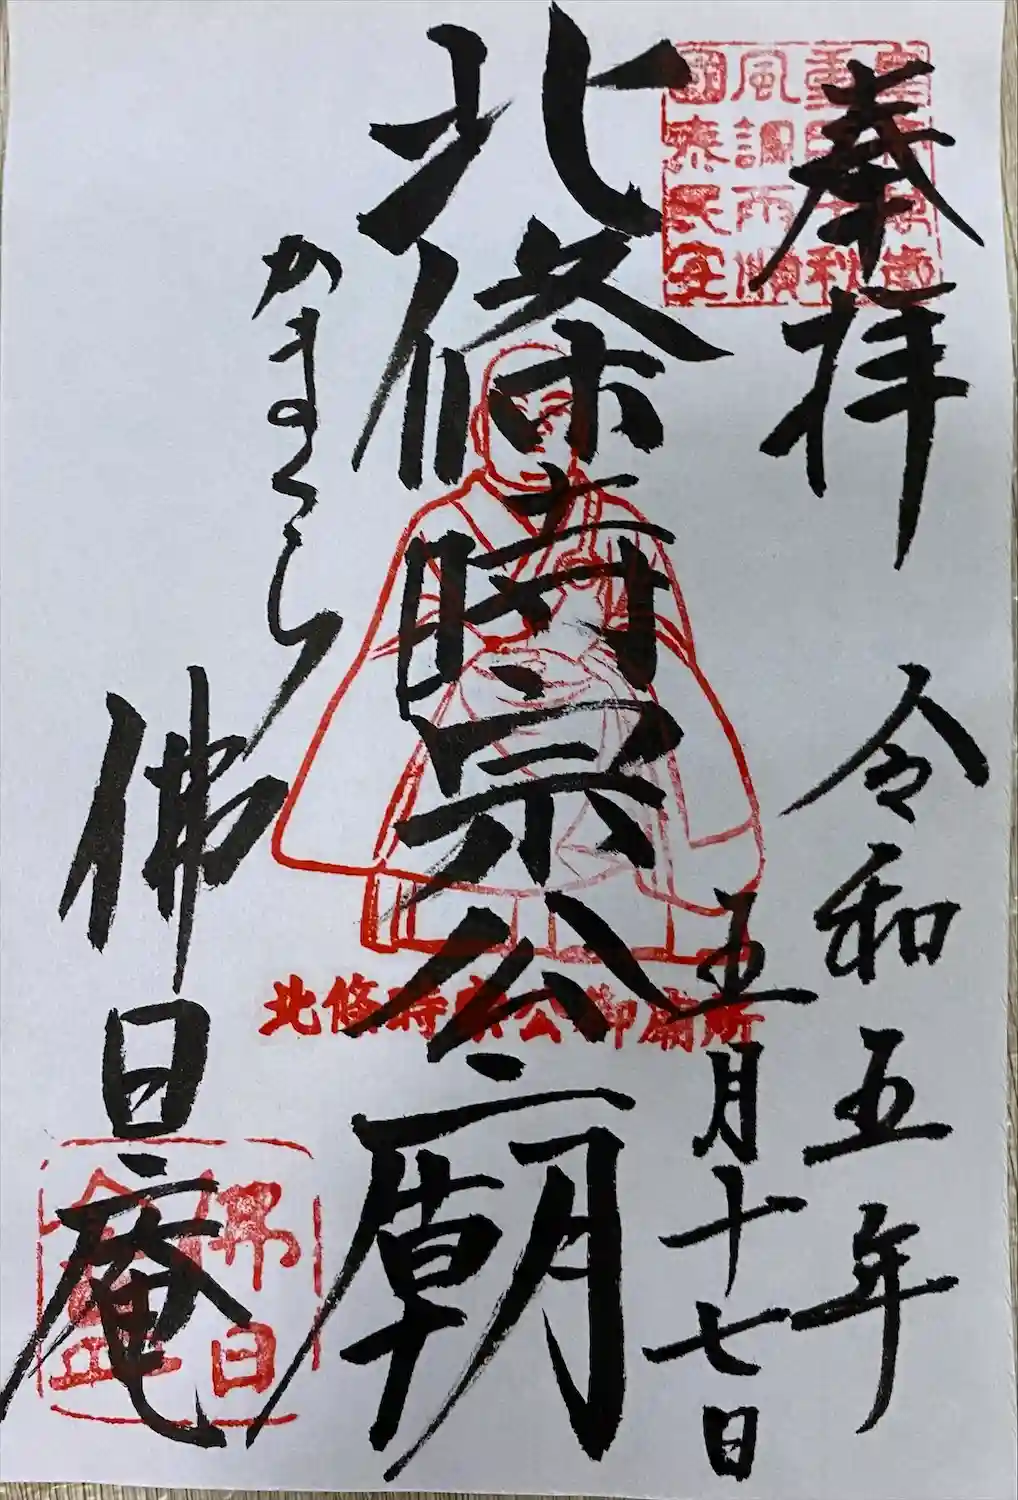 奉拝
令和五年
五月十七日
皇帝萬歳
重臣千秋
風調雨順
國泰民安
北條時宗公廟
北條時宗公御廟所
かまくら
佛日庵
佛日